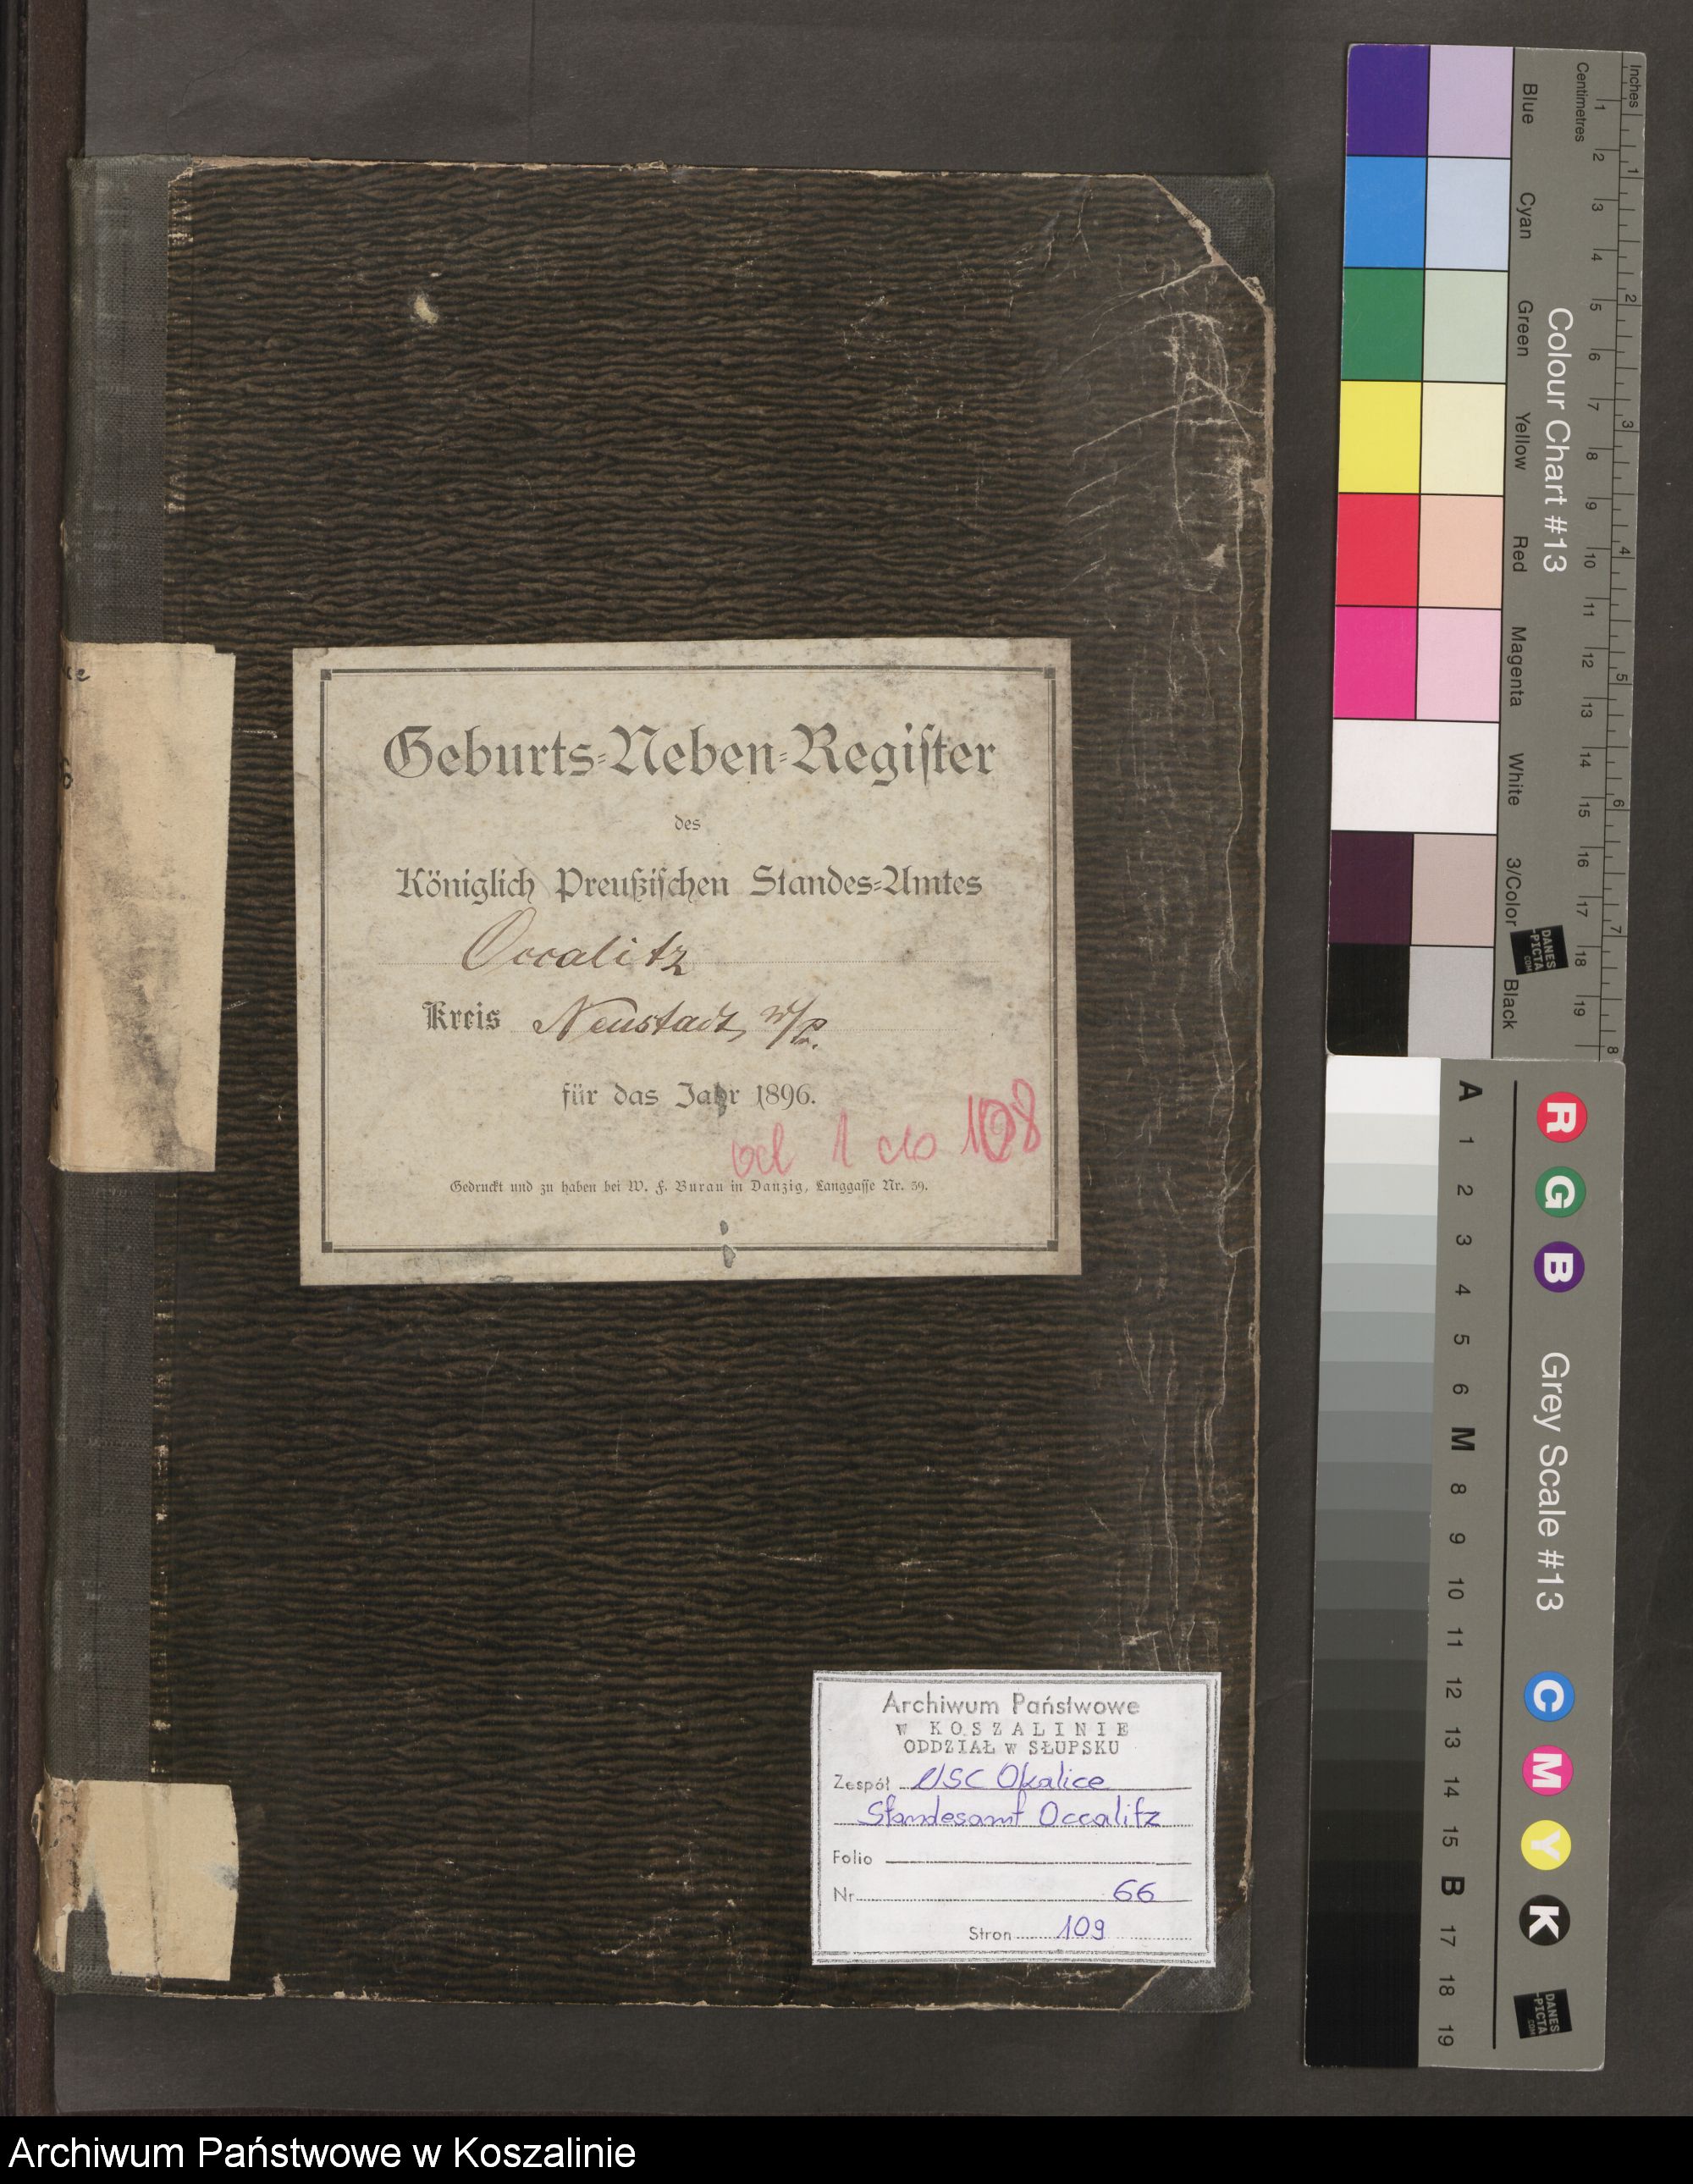 Geburts-Neben-Register
des
Königlich Preußischen Standes-Amtes
Occalitz
Kreis Neustadt, W/Pr.
für das Jahr 1896.
od 1 do 108
Gedruckt und zu haben bei W. F. Burau in Danzig, Langgasse Nr. 39.
Archiwum Państwowe
w KOSZALINIE
ODDZIAŁ w SŁUPSKU
Zespół USC Okalice
Standesamt Occalitz
Folio
Nr 66
Stron 109
Inches
Centimetres
1 2 3 4 5 6 7 8 9 10 11 12 13 14 15 16 17 18 19
1 2 3 4 5 6 7 8
Colour Chart #13
Blue Cyan Green Yellow Red Magenta White 3/Color Black
DANES
-PICTA
.COM
A 1 2 3 4 5 6 M 8 9 10 11 12 13 14 15 B 17 18 19
R G B Grey Scale #13 C M Y K
DANES
-PICTA
.COM
Archiwum Państwowe w Koszalinie